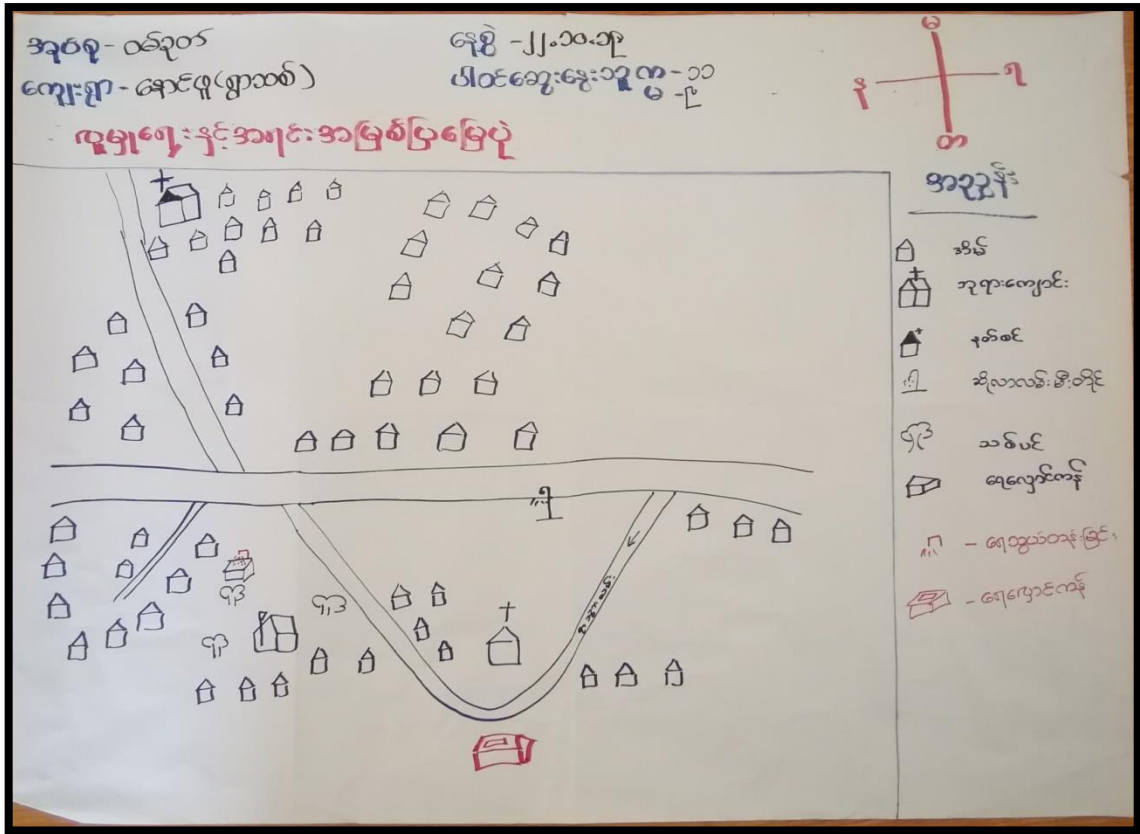 အုပ်စု - ဝမ်ဒုတ်
ကျေးရွာ - နောင်ဖူ (ရွာသစ်)
နေ့စွဲ - ၂၂.၁၀.၁၉
ပါဝင်ဆွေးနွေးသူ ကျ - ၁၁
မ - ၉
လူမှုရေးနှင့်အရင်းအမြစ်ပြမြေပုံ
မ
န
ရ
တ
အညွှန်း
အိမ်
ဘုရားကျောင်း
နတ်စင်
ဆိုလာလမ်းမီးတိုင်
သစ်ပင်
ရေလှောင်ကန်
- ရေသွယ်တန်းခြင်း
- ရေလှောင်ကန်